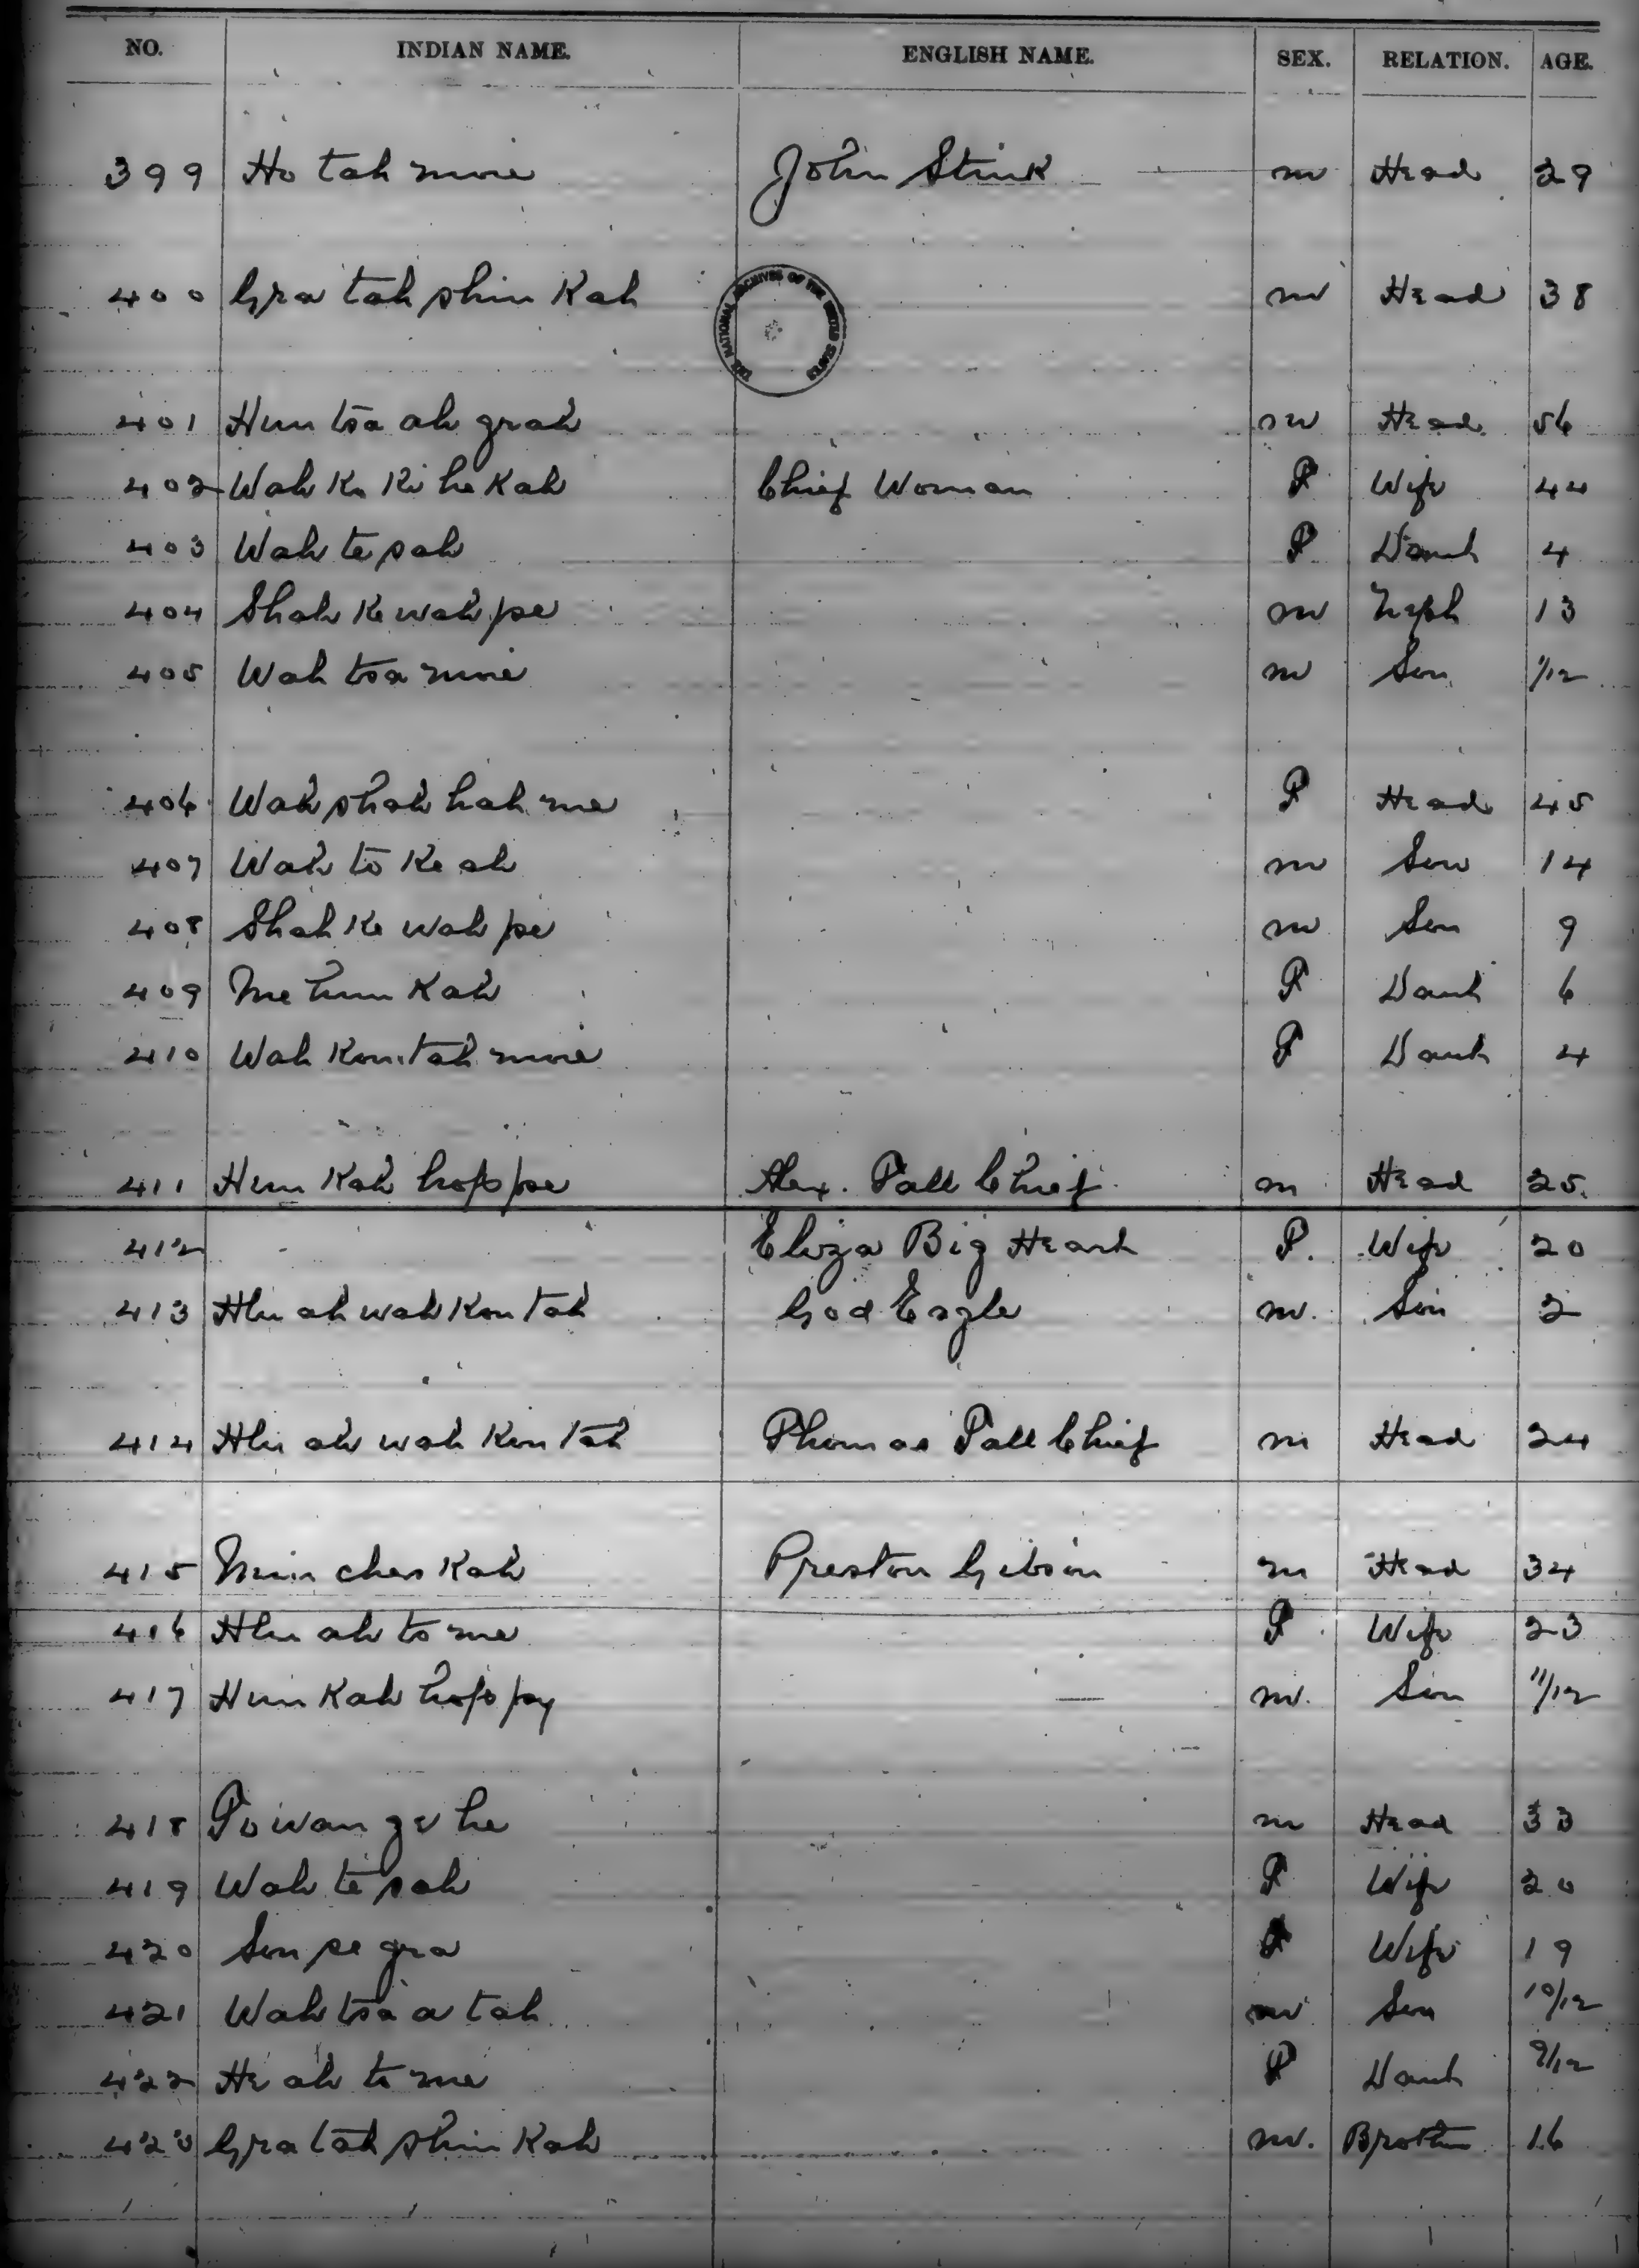 NO. INDIAN NAME. ENGLISH NAME. SEX. RELATION. AGE.
399 Ho tah moie John Stink m Head 29
THE NATIONAL ARCHIVES OF THE UNITED STATES
400 Gra tah shin Kah m Head 38
401 Hun tsa ah grah m Head 56
402 Wah Ko Ki he Kah Chief Woman F Wife 44
403 Wah te sah F Dauh 4
404 Shah Ke wah pe m Neph 13
405 Wah tsa moie m Son 1/12
406 Wah shah hah me F Head 45
407 Wah to Ke ah m Son 14
408 Shah Ke wah pe m Son 9
409 Me tsun Kah F Dauh 6
410 Wah Kon tah moie F Dauh 4
411 Hun Kah hop pe Alex. Tall Chief m Head 25.
412 Eliza Big Heart F. Wife 20
413 Hlu ah wah Kon tah God Eagle m. Son 2
414 Hlu ah wah Kon tah Thomas Tall Chief m Head 24
415 Min cher Kah Preston Gibson m Head 34
416 Hlu ah to me F Wife 23
417 Hun Kah hop py m. Son 11/12
418 To wan ge he m Head 33
419 Wah te sah F Wife 20
420 Son se gra F Wife 19
421 Wah tsa a tah m Son 10/12
422 He ah to me F Dauh 9/12
423 Gra tah shin Kah m. Brother 16